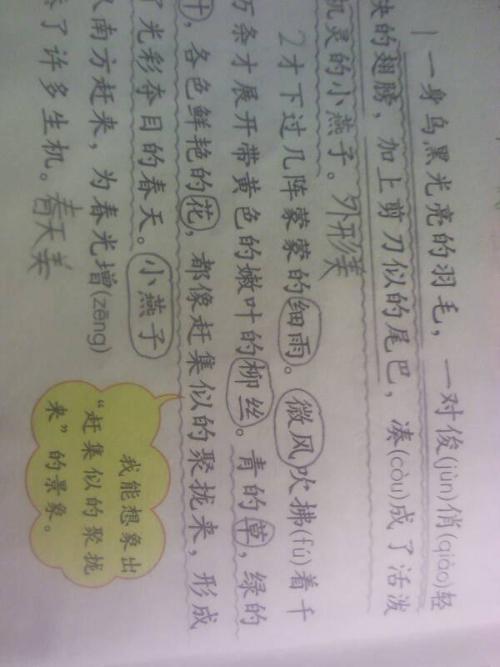 1 一身乌黑光亮的羽毛，一对俊(jùn)俏(qiào)轻
快的翅膀，加上剪刀似的尾巴，凑(còu)成了活泼
机灵的小燕子。外形美
2 才下过几阵蒙蒙的细雨。微风吹拂(fú)着千
万条才展开带黄色的嫩叶的柳丝。青的草，绿的
叶，各色鲜艳的花，都像赶集似的聚拢来，形成
了光彩夺目的春天。小燕子
从南方赶来，为春光增(zēng)
添了许多生机。春天美
我能想象出
“赶集似的聚拢
来”的景象。